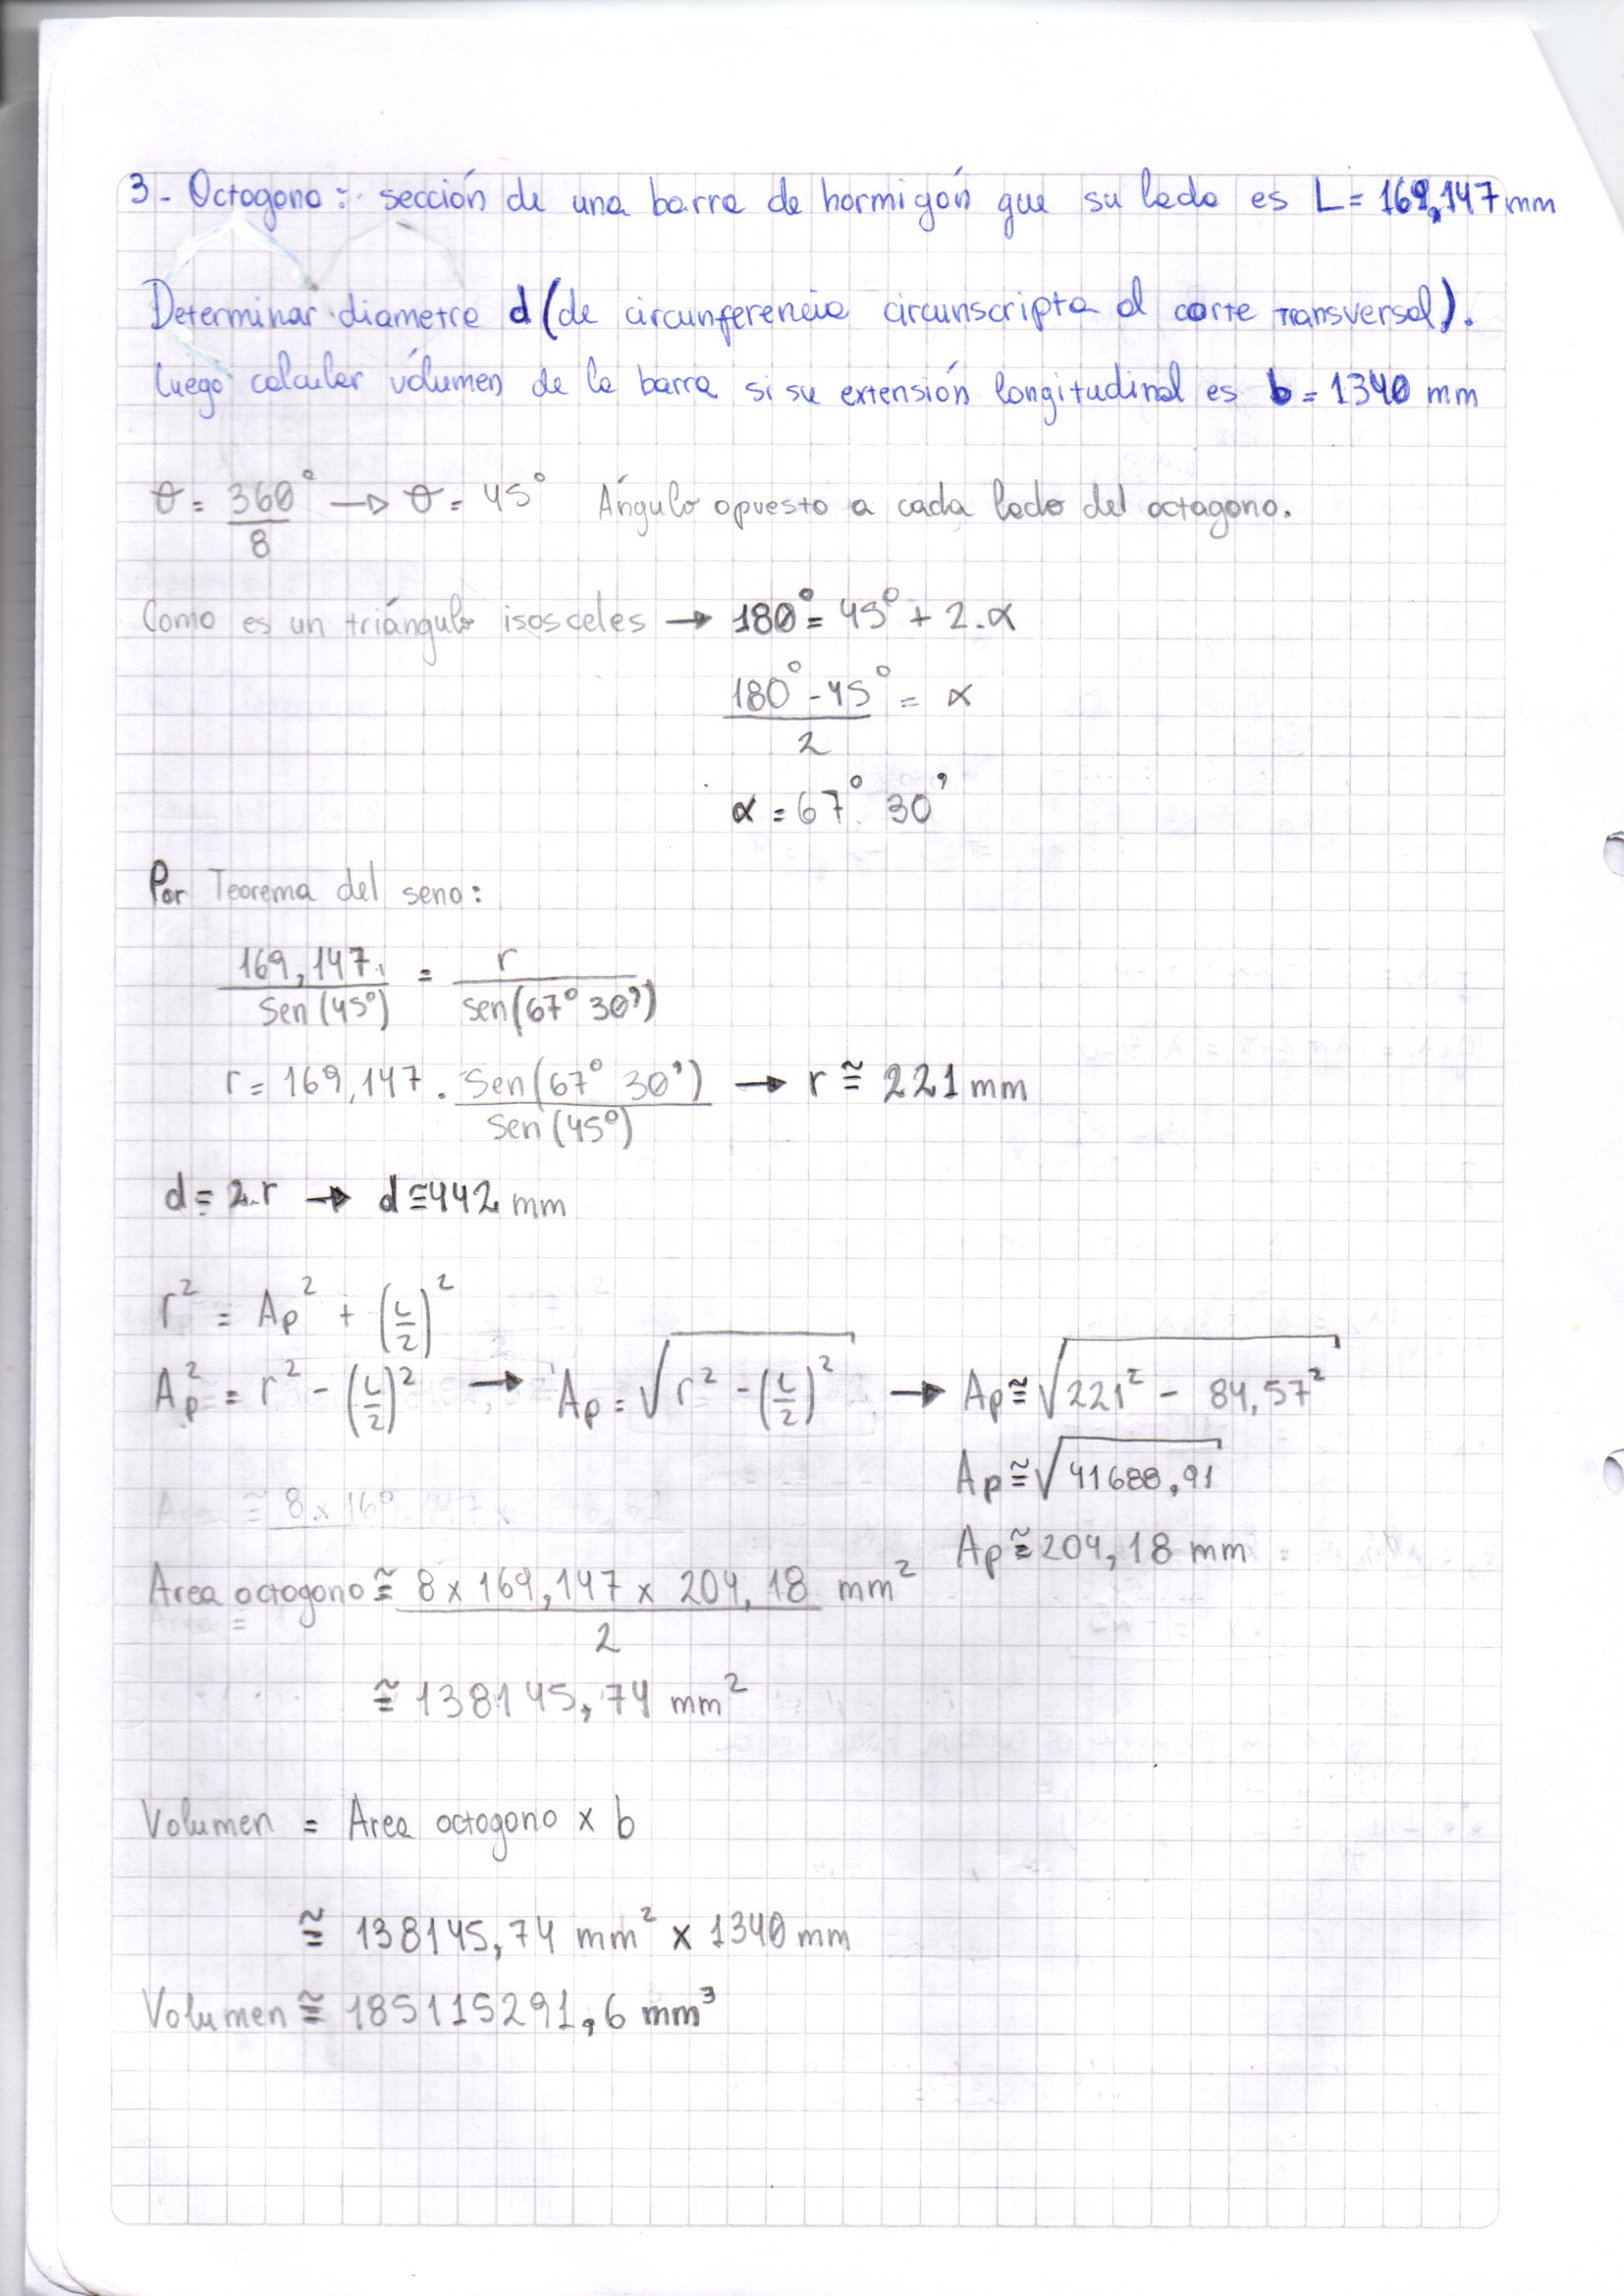 3- Octogono: sección de una barra de hormigón que su lado es L= 169,147 mm
Determinar diametro d (de circunferencia circunscripta al corte transversal).
Luego calcular vólumen de la barra si su extensión longitudinal es b = 1340 mm
θ = 360°/8 → θ = 45° Ángulo opuesto a cada lado del octagono.
Como es un triángulo isosceles → 180° = 45° + 2.α
(180° - 45°)/2 = α
α = 67° 30'
Por Teorema del seno:
169,147/Sen(45°) = r/sen(67° 30')
r = 169,147 . Sen(67° 30')/Sen(45°) → r ≅ 221 mm
d = 2.r → d ≅ 442 mm
r² = Ap² + (L/2)²
Ap² = r² - (L/2)² → Ap = √(r² - (L/2)²) → Ap ≅ √(221² - 84,57²)
Ap ≅ √41688,91
Ap ≅ 204,18 mm
Area octogono ≅ (8 x 169,147 x 204,18)/2 mm²
≅ 138145,74 mm²
Volumen = Area octogono x b
≅ 138145,74 mm² x 1340 mm
Volumen ≅ 185115291,6 mm³